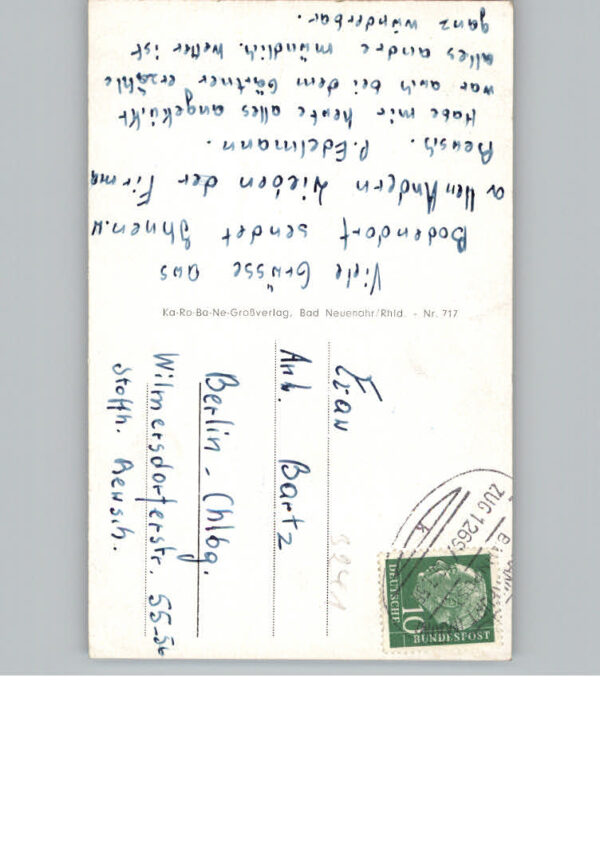 Viele Grüsse aus
Bodendorf sendet Ihnen u.
allen Andern Lieben der Firma
Reusch. P. Edelmann.
Habe mir heute alles angekükt
war auch bei dem Gärtner erzähle
alles andre mündlich. Wetter ist
ganz wünderbar.
Ka-Ro-Ba-Ne-Großverlag, Bad Neuenahr/Rhld. - Nr. 717
Frau
Anh. Bartz
Berlin - Chlbg.
Wilmersdorferstr. 55-56
Stoffh. Reusch.
DEUTSCHE
BUNDESPOST
10
ZUG 1269
K